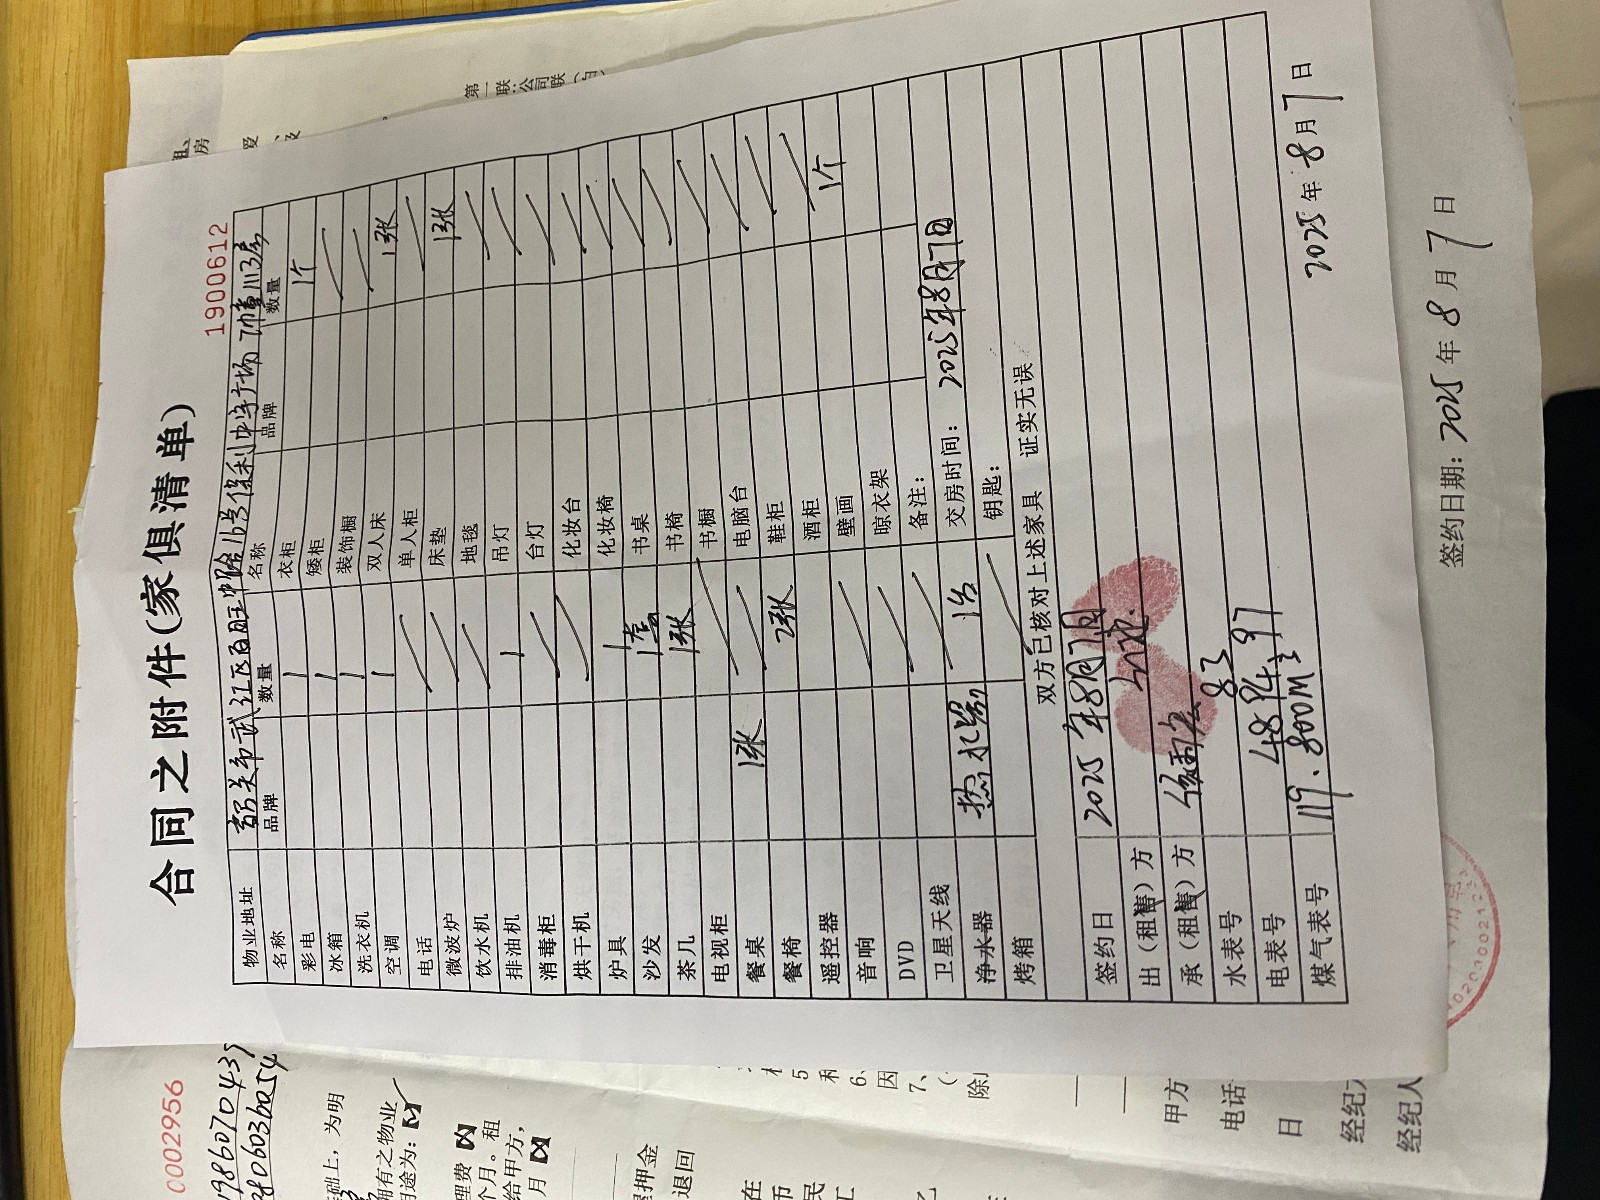 合同之附件(家俱清单)
1900612
物业地址 韶关市武江区百旺中路 保利中宇广场 1113房
名称 品牌 数量 名称 品牌 数量
彩电 1 衣柜 1个
冰箱 1 矮柜
洗衣机 1 装饰橱
空调 1 双人床 1张
电话 单人柜
微波炉 床垫 1张
饮水机 地毯
排油机 1 吊灯
消毒柜 台灯
烘干机 化妆台
炉具 化妆椅
沙发 1套 书桌
茶几 1张 书椅
电视柜 书橱
餐桌 1张 电脑台
餐椅 2张 鞋柜
遥控器 酒柜 1个
音响 壁画
DVD 晾衣架
卫星天线 备注:
净水器 热水器 1台 交房时间: 2025年8月7日
烤箱 钥匙:
双方已核对上述家具 证实无误
签约日 2025年8月7日
出(租售)方
承(租售)方
水表号 83
电表号 4894.97
煤气表号 119.800M³
2025年8月7日
签约日期: 2025年8月7日
第一联:公司联(白)
0002956
础上, 为明
拥有之物业
用途为:
理费
个月。租
给甲方,
月
押金
退回
甲方
电话
日
经纪
经纪人